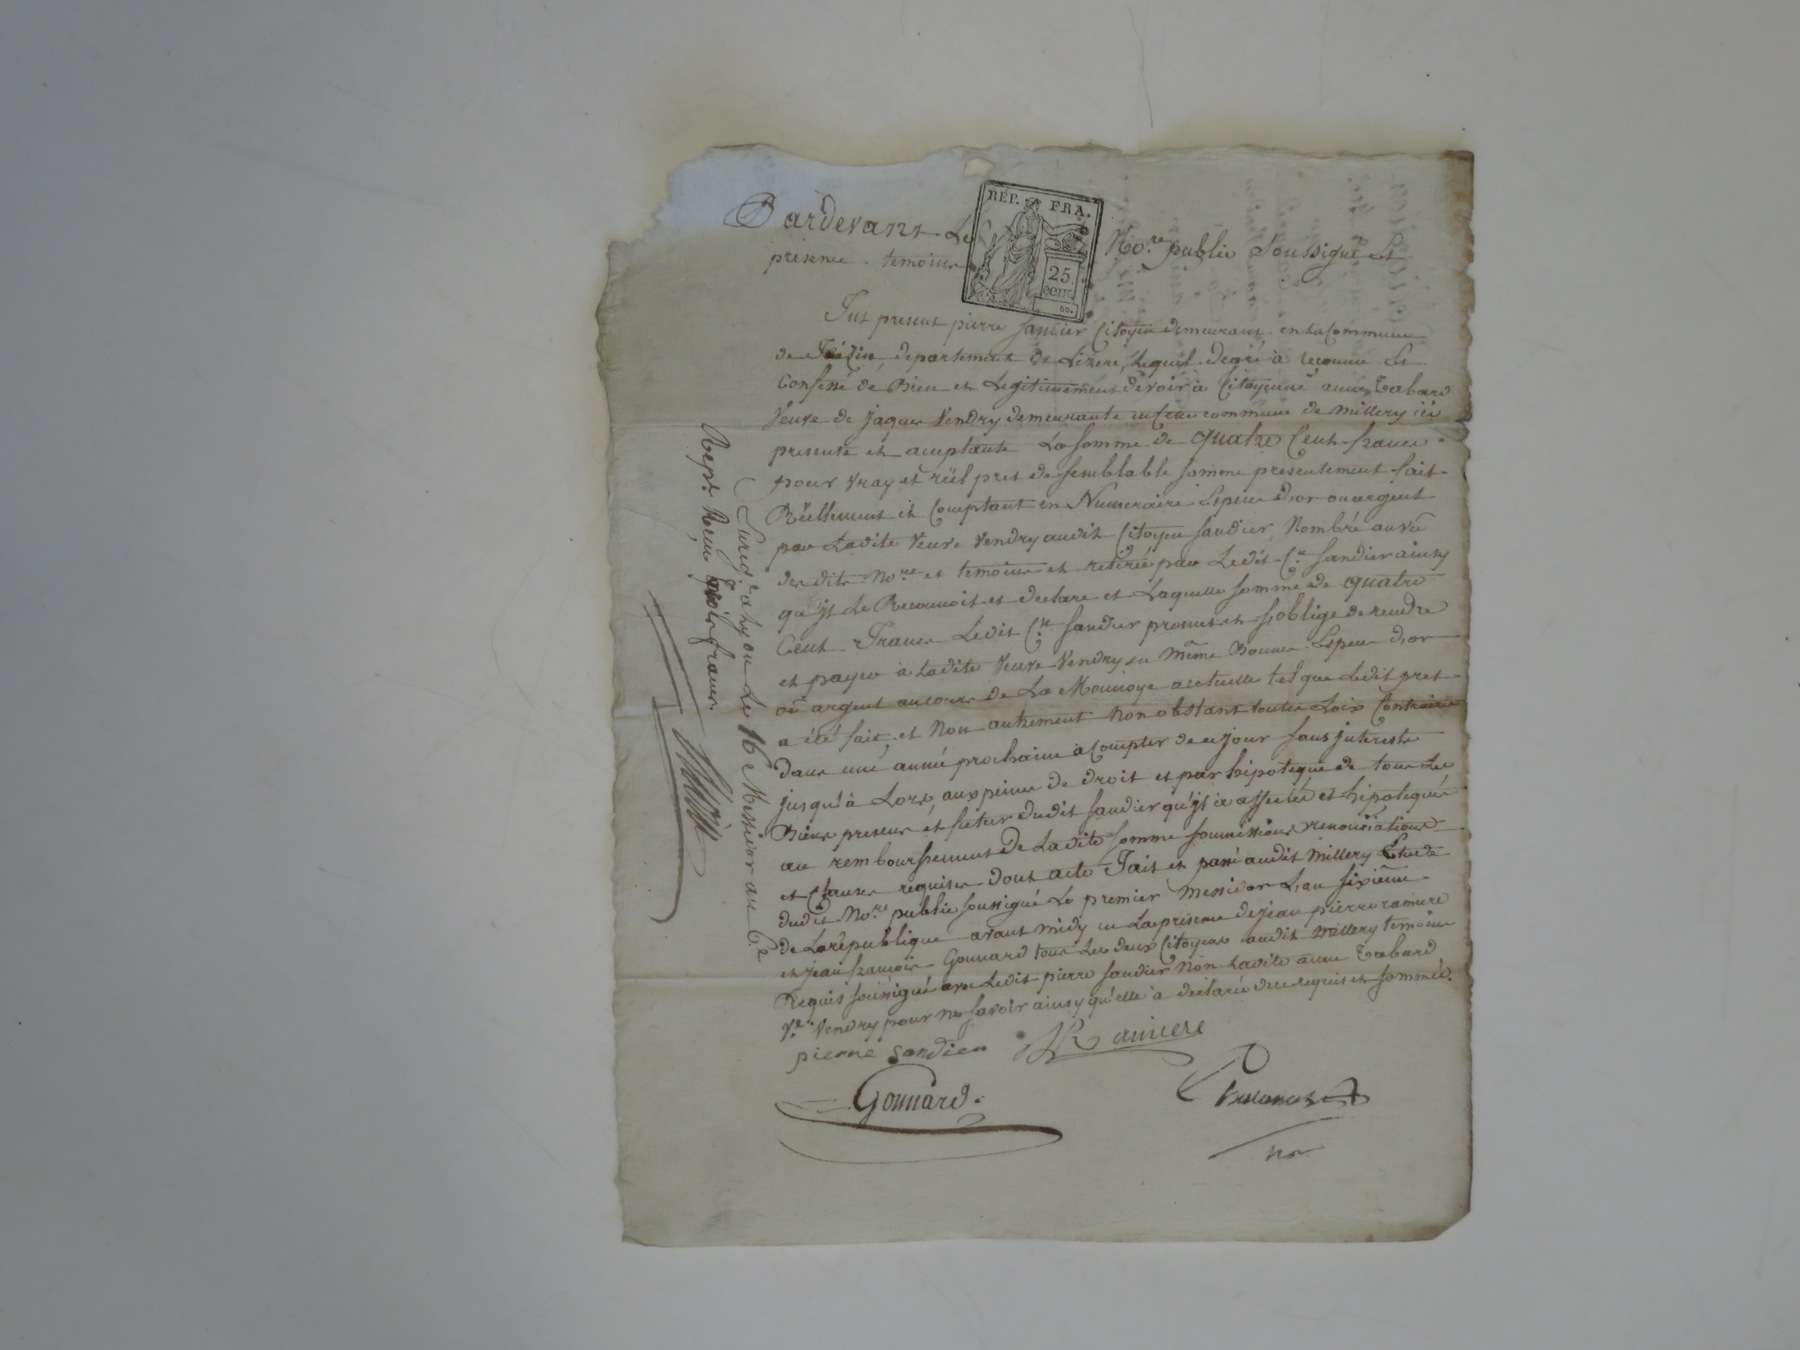 Pardevant Le No.re public Soussigné Et
presence temoins
RÉP. FRA.
25
cent.
Fut present pierre sandier Citoyen demeurant en la Commune
de departement de Lizere, Lequel degré à reconnu Et
Confessé de Bien et Legitimement devoir à Citoyenne anne Tabard
Veuve de jaques Vendry demeurante en cette commune de millery ici
presente et aceptante La somme de quatre Cent francs
pour vray et réel pret de semblable somme presentement fait
Réellement et Comptant en Numeraire Espece d'or ou argent
par Ladite Veuve Vendry audit Citoyen sandier, Nombré au vû
des dits No.re et temoins et retirée par Ledit C.en sandier ainsy
qu'jl Le Reconnoit et declare et Laquelle somme de quatre
Cent Francs Ledit C.en sandier promet et s'oblige de rendre
et payer à Ladite Veuve Vendry en même Bonnes Especes d'or
ou argent au cours de La Monnoye actuelle tel que Ledit pret
a été fait, et Non autrement non obstant toutes Loix Contraires
dans une année prochaine à Compter de ce jour sans jnterests
jusqu'à Lors, aux peines de droit et par hipoteque de tous Les
Biens presens et futur dudit sandier qu'jl à affectés et hipotequés
au remboursement de Ladite somme soumissions renonciations
et Clauses requises dont acte Fait et passé audit millery Etude
dudit No.re public soussigné Le premier Messidor L'an sixieme
de La république avant midy en La présence de jean pierre ramiere
et jean francois Gonnard tous Les deux Citoyens audit millery temoins
Requis soussigné avec Ledit pierre sandier Non Ladite anne Tabard
V.e Vendry pour ne savoir ainsy qu'elle à declaré de ce requis et sommée.
pierre sandier Ramiere
Gonnard.
no.re
Enreg.é a Lyon Le 16 Messidor an 6.e
Rept. Reçu quatre francs